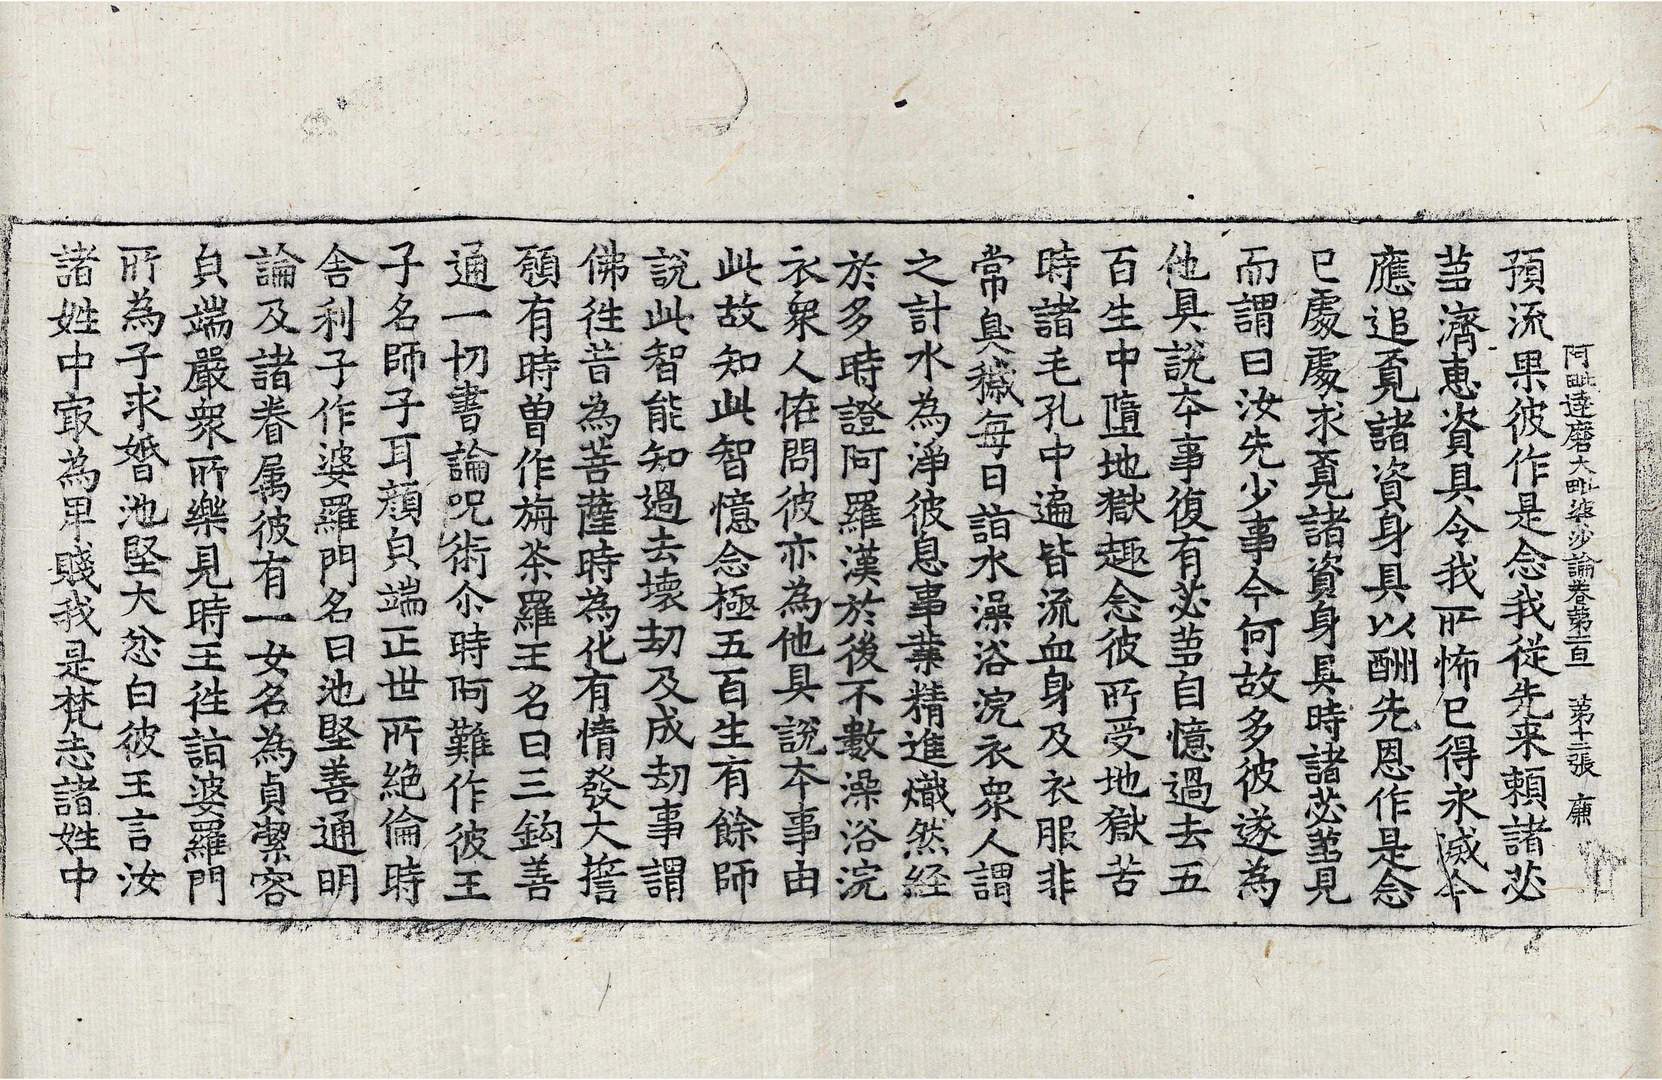 阿毗達磨大毗婆沙論卷第一百一　第十二張　廉
預流果彼作是念我從先来頼諸苾
蒭濟惠資具令我所怖已得永滅今
應追覔諸資身具以酬先恩作是念
已處處求覔諸資身具時諸苾蒭見
而謂曰汝先少事今何故多彼遂為
他具說夲事復有苾蒭自憶過去五
百生中墮地獄趣念彼所受地獄苦
時諸毛孔中遍皆流血身及衣服非
常臭穢每日詣水澡浴浣衣衆人謂
之計水為淨彼息事業精進熾然経
於多時證阿羅漢於後不數澡浴浣
衣衆人恠問彼亦為他具說夲事由
此故知此智憶念極五百生有餘師
說此智能知過去壞劫及成劫事謂
佛徃昔為菩薩時為化有情發大誓
願有時曽作旃茶羅王名曰三鈎善
通一切書論呪術尒時阿難作彼王
子名師子耳顔皃端正世所絶倫時
舎利子作婆羅門名曰池堅善通明
論及諸眷属彼有一女名為貞潔容
皃端嚴衆所樂見時王徃詣婆羅門
所為子求婚池堅大忿白彼王言汝
諸姓中㝡為卑賤我是梵志諸姓中